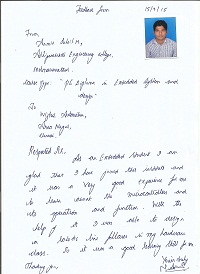 Feedback form
15/9/15
From,
Engineering college,
"PG Diploma in Embedded System and
design"
To
Anna Nagar,
Chennai.
Respected Sir,
As an Embedded Student I am
glad that I have joined this institute and
it was a very good experience for me
to learn about the microcontrollers and
its operation and function. With the
help of it I was able to design
a in my hardware
class. So it was a good learning skill for me
Thanking you.
Yours truly